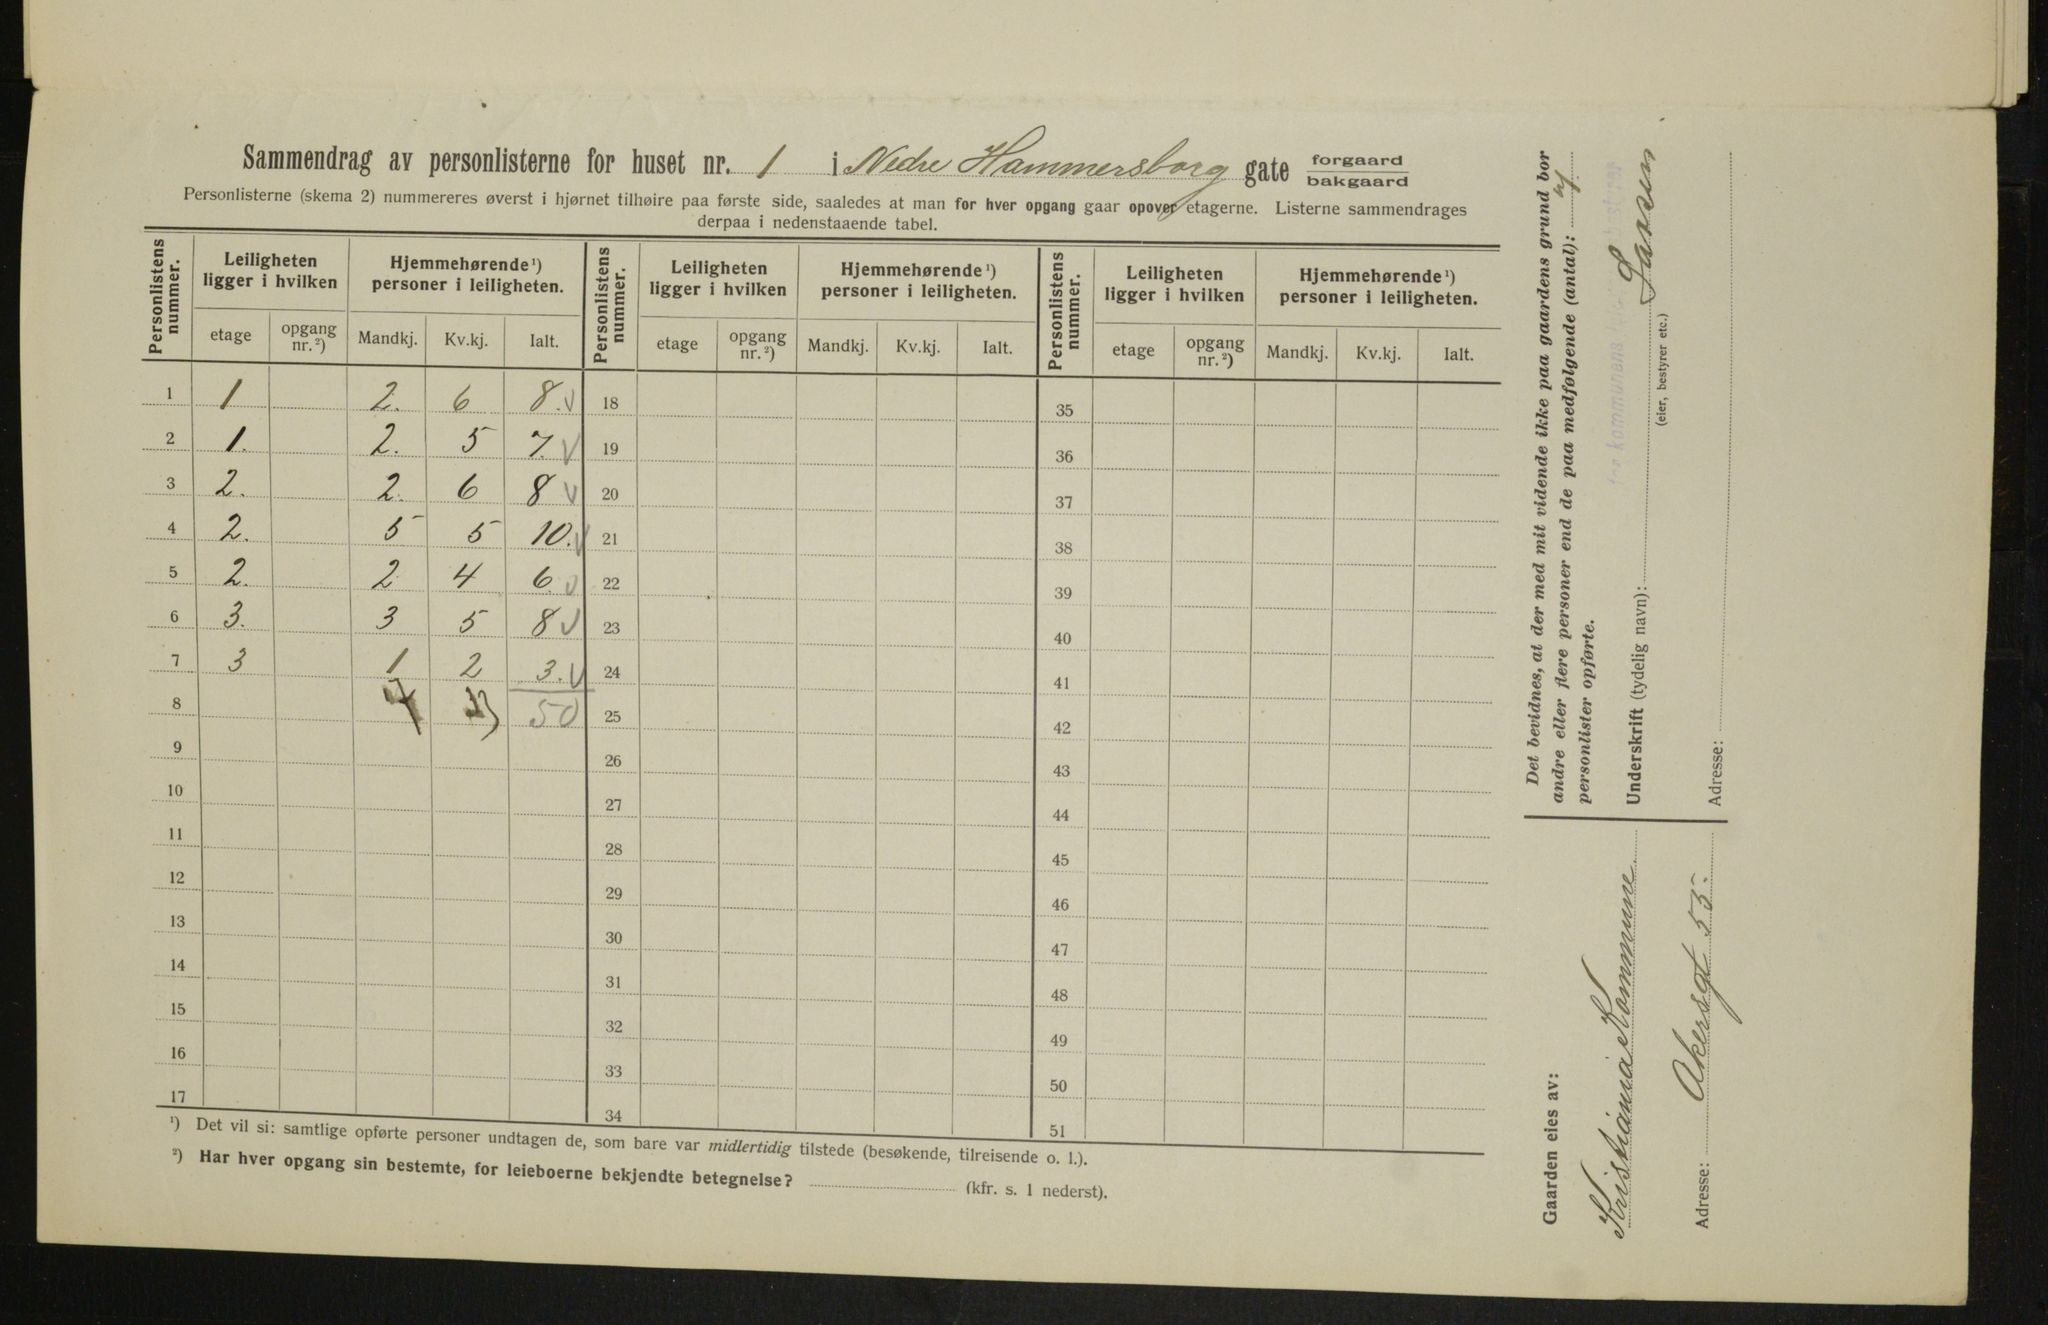 Sammendrag av personlisterne for huset nr. 1 i Nedre Hammersborg gate forgaard bakgaard
Personlisterne (skema 2) nummereres øverst i hjørnet tilhøire paa første side, saaledes at man for hver opgang gaar opover etagerne. Listerne sammendrages
derpaa i nedenstaaende tabel.
Personlistens nummer. Leiligheten ligger i hvilken Hjemmehørende ¹) personer i leiligheten. Personlistens nummer. Leiligheten ligger i hvilken Hjemmehørende ¹) personer i leiligheten. Personlistens nummer. Leiligheten ligger i hvilken Hjemmehørende ¹) personer i leiligheten.
etage opgang nr. ²) Mandkj. Kv.kj. Ialt. etage opgang nr. ²) Mandkj. Kv.kj. Ialt. etage opgang nr. ²) Mandkj. Kv.kj. Ialt.
1 1 2. 6 8. v 18 35
2 1. 2. 5 7. v 19 36
3 2. 2. 6 8 v 20 37
4 2. 5 5 10. v 21 38
5 2. 2 4 6. v 22 39
6 3. 3 5 8 v 23 40
7 3 1 2 3. v 24 41
8 50 25 42
9 26 43
10 27 44
11 28 45
12 29 46
13 30 47
14 31 48
15 32 49
16 33 50
17 34 51
¹) Det vil si: samtlige opførte personer undtagen de, som bare var midlertidig tilstede (besøkende, tilreisende o. l.).
²) Har hver opgang sin bestemte, for leieboerne bekjendte betegnelse? (kfr. s. 1 nederst).
Det bevidnes, at der med mit vidende ikke paa gaardens grund bor
andre eller flere personer end de paa medfølgende (antal): 7
personlister opførte.
for kommunens
Underskrift (tydelig navn):
(eier, bestyrer etc.)
Adresse:
Gaarden eies av:
Kristiania Kommune
Adresse: Akersgt 55.